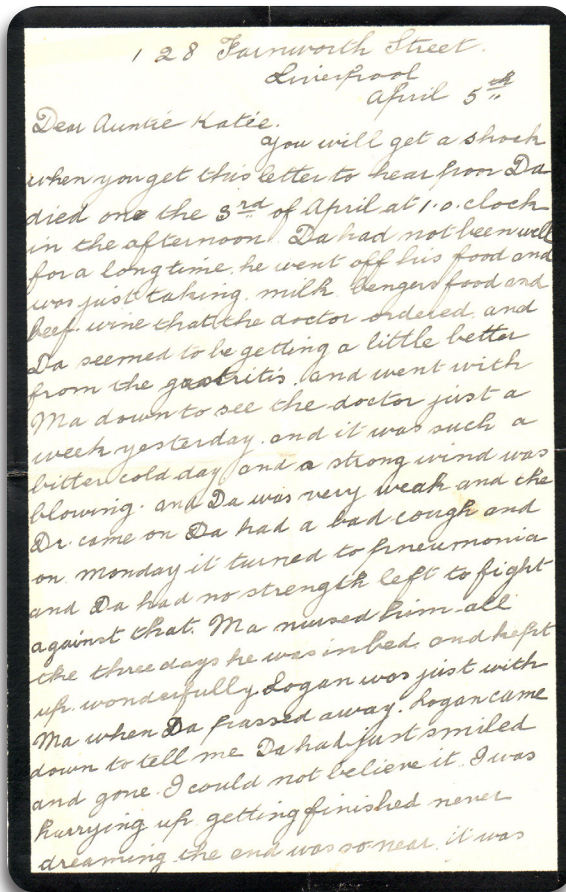 128 Farnworth Street.
Liverpool
April 5th
Dear Auntie Katie.
You will get a shock
when you get this letter to hear poor Da
died one the 3rd of April at 1.o.clock
in the afternoon. Da had not been well
for a long time. he went off his food and
was just taking. milk. bengers food and
beef. wine that the doctor ordered. and
Da seemed to be getting a little better
from the gastritis. and went with
Ma down to see the doctor just a
week yesterday. and it was such a
bitter cold day and a strong wind was
blowing. and Da was very weak and the
Dr. came on Da had a bad cough and
on monday it turned to pneumonia
and Da had no strength left to fight
against that. Ma nursed him all
the three days he was in bed. and kept
up. wonderfully Logan was just with
Ma when Da passed away. Logan came
down to tell me Da had just smiled
and gone. I could not believe it. I was
hurrying up. getting finished never
dreaming the end was so near. it was